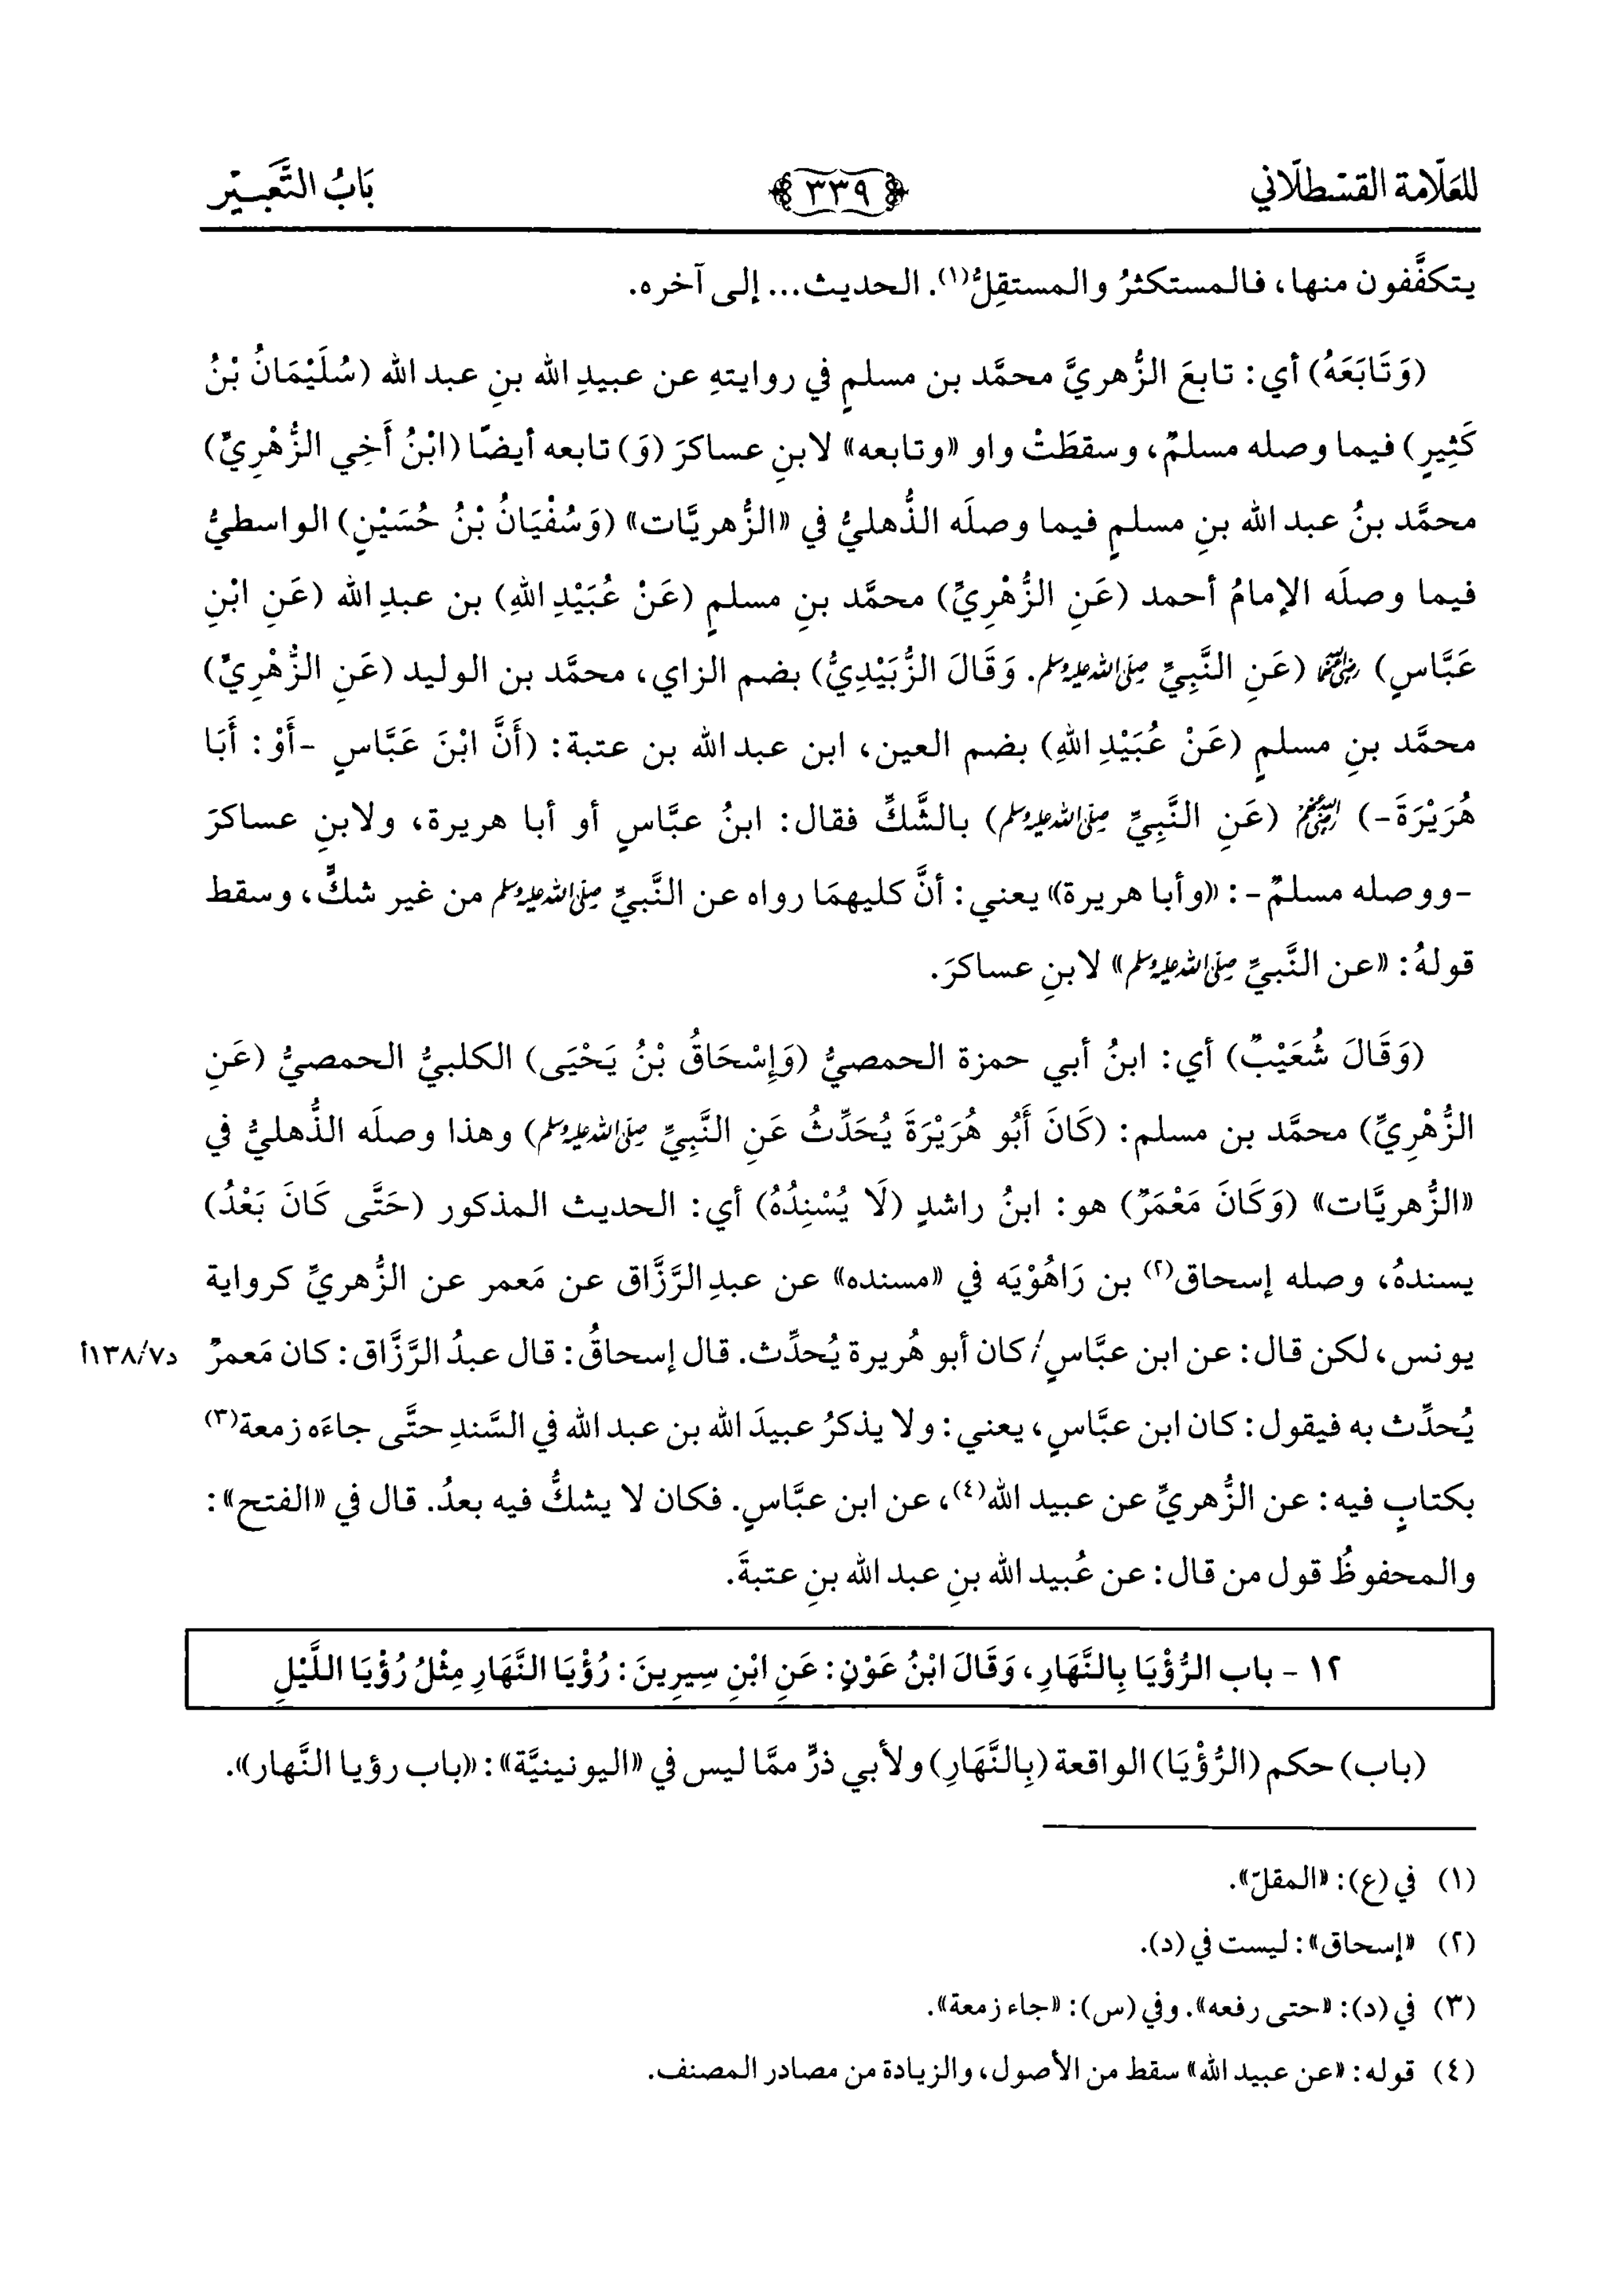 للعلّامة القسطلّاني ٣٣٩ بَابُ التَّعبير
يتكفَّفون منها، فالمستكثرُ والمستقِلُّ(١). الحديث... إلى آخره.
(وَتَابَعَهُ) أي: تابعَ الزُّهريَّ محمَّد بن مسلمٍ في روايتهِ عن عبيدِ الله بنِ عبد الله (سُلَيْمَانُ بْنُ
كَثِيرٍ) فيما وصله مسلمٌ، وسقطَتْ واو «وتابعه» لابنِ عساكرَ (وَ) تابعه أيضًا (ابْنُ أَخِي الزُّهْرِيِّ)
محمَّد بنُ عبد الله بنِ مسلمٍ فيما وصلَه الذُّهليُّ في «الزُّهريَّات» (وَسُفْيَانُ بْنُ حُسَيْنٍ) الواسطيُّ
فيما وصلَه الإمامُ أحمد (عَنِ الزُّهْرِيِّ) محمَّد بنِ مسلمٍ (عَنْ عُبَيْدِ اللهِ) بن عبدِ الله (عَنِ ابْنِ
عَبَّاسٍ) رضي الله عنهما (عَنِ النَّبِيِّ صلى الله عليه وسلم. وَقَالَ الزُّبَيْدِيُّ) بضم الزاي، محمَّد بن الوليد (عَنِ الزُّهْرِيِّ)
محمَّد بنِ مسلمٍ (عَنْ عُبَيْدِ اللهِ) بضم العين، ابن عبد الله بن عتبة: (أَنَّ ابْنَ عَبَّاسٍ -أَوْ: أَبَا
هُرَيْرَةَ-) رضي الله عنهم (عَنِ النَّبِيِّ صلى الله عليه وسلم) بالشَّكِّ فقال: ابنُ عبَّاسٍ أو أبا هريرة، ولابنِ عساكرَ
-ووصله مسلمٌ-: «وأبا هريرة» يعني: أنَّ كليهمَا رواه عن النَّبيِّ صلى الله عليه وسلم من غير شكٍّ، وسقط
قولهُ: «عن النَّبيِّ صلى الله عليه وسلم» لابنِ عساكرَ.
(وَقَالَ شُعَيْبٌ) أي: ابنُ أبي حمزة الحمصيُّ (وَإِسْحَاقُ بْنُ يَحْيَى) الكلبيُّ الحمصيُّ (عَنِ
الزُّهْرِيِّ) محمَّد بن مسلم: (كَانَ أَبُو هُرَيْرَةَ يُحَدِّثُ عَنِ النَّبِيِّ صلى الله عليه وسلم) وهذا وصلَه الذُّهليُّ في
«الزُّهريَّات» (وَكَانَ مَعْمَرٌ) هو: ابنُ راشدٍ (لَا يُسْنِدُهُ) أي: الحديث المذكور (حَتَّى كَانَ بَعْدُ)
يسندهُ، وصله إسحاق(٢) بن رَاهُوْيَه في «مسنده» عن عبدِ الرَّزَّاق عن مَعمر عن الزُّهريِّ كرواية
يونس، لكن قال: عن ابن عبَّاسٍ/ كان أبو هُريرة يُحدِّث. قال إسحاقُ: قال عبدُ الرَّزَّاق: كان مَعمرٌ د٧/١٣٨أ
يُحدِّث به فيقول: كان ابن عبَّاسٍ، يعني: ولا يذكرُ عبيدَ الله بن عبد الله في السَّندِ حتَّى جاءَه زمعة(٣)
بكتابٍ فيه: عن الزُّهريِّ عن عبيد الله(٤)، عن ابن عبَّاسٍ. فكان لا يشكُّ فيه بعدُ. قال في «الفتح»:
والمحفوظُ قول من قال: عن عُبيد الله بنِ عبد الله بنِ عتبةَ.
١٢ - باب الرُّؤْيَا بِالنَّهَارِ، وَقَالَ ابْنُ عَوْنٍ: عَنِ ابْنِ سِيرِينَ: رُؤْيَا النَّهَارِ مِثْلُ رُؤْيَا اللَّيْلِ
(باب) حكم (الرُّؤْيَا) الواقعة (بِالنَّهَارِ) ولأبي ذرٍّ ممَّا ليس في «اليونينيَّة»: «باب رؤيا النَّهار».
(١) في (ع): «المقلّ».
(٢) «إسحاق»: ليست في (د).
(٣) في (د): «حتى رفعه». وفي (س): «جاء زمعة».
(٤) قوله: «عن عبيد الله» سقط من الأصول، والزيادة من مصادر المصنف.